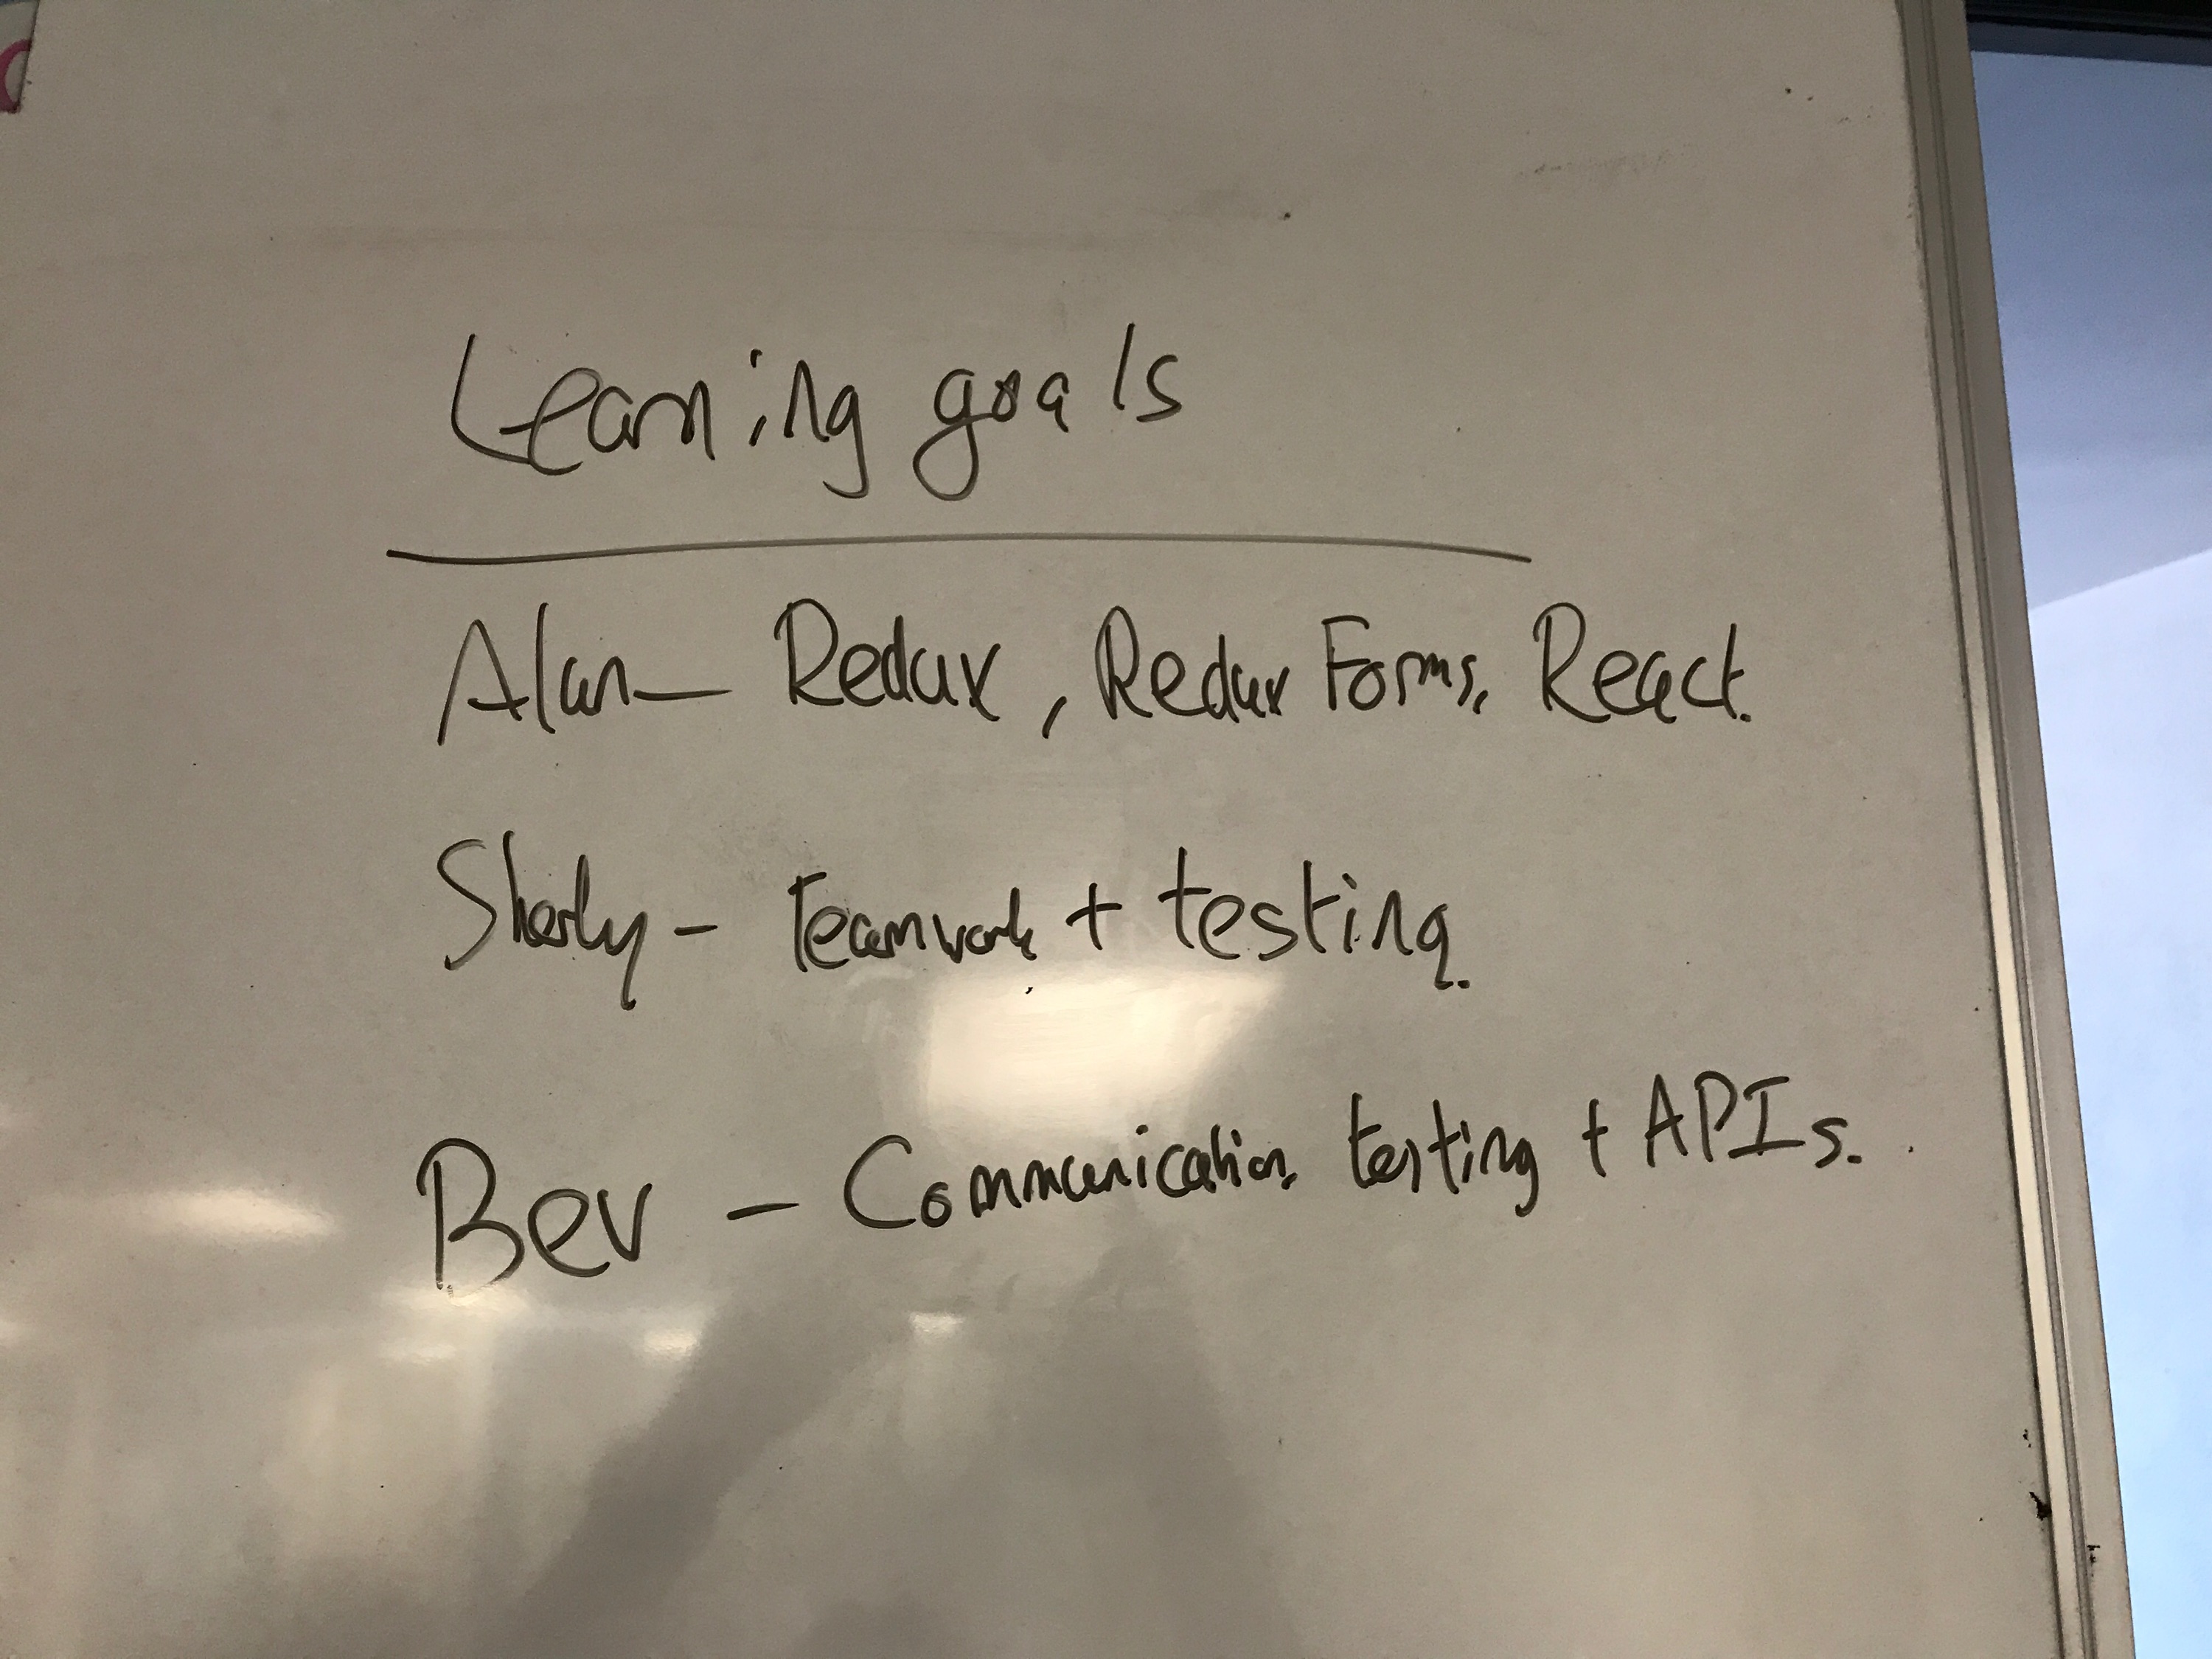 Learning goals
Alan - Redux, Redux Forms, React.
Sherly - Teamwork + testing.
Bev - Communication, testing + APIs.